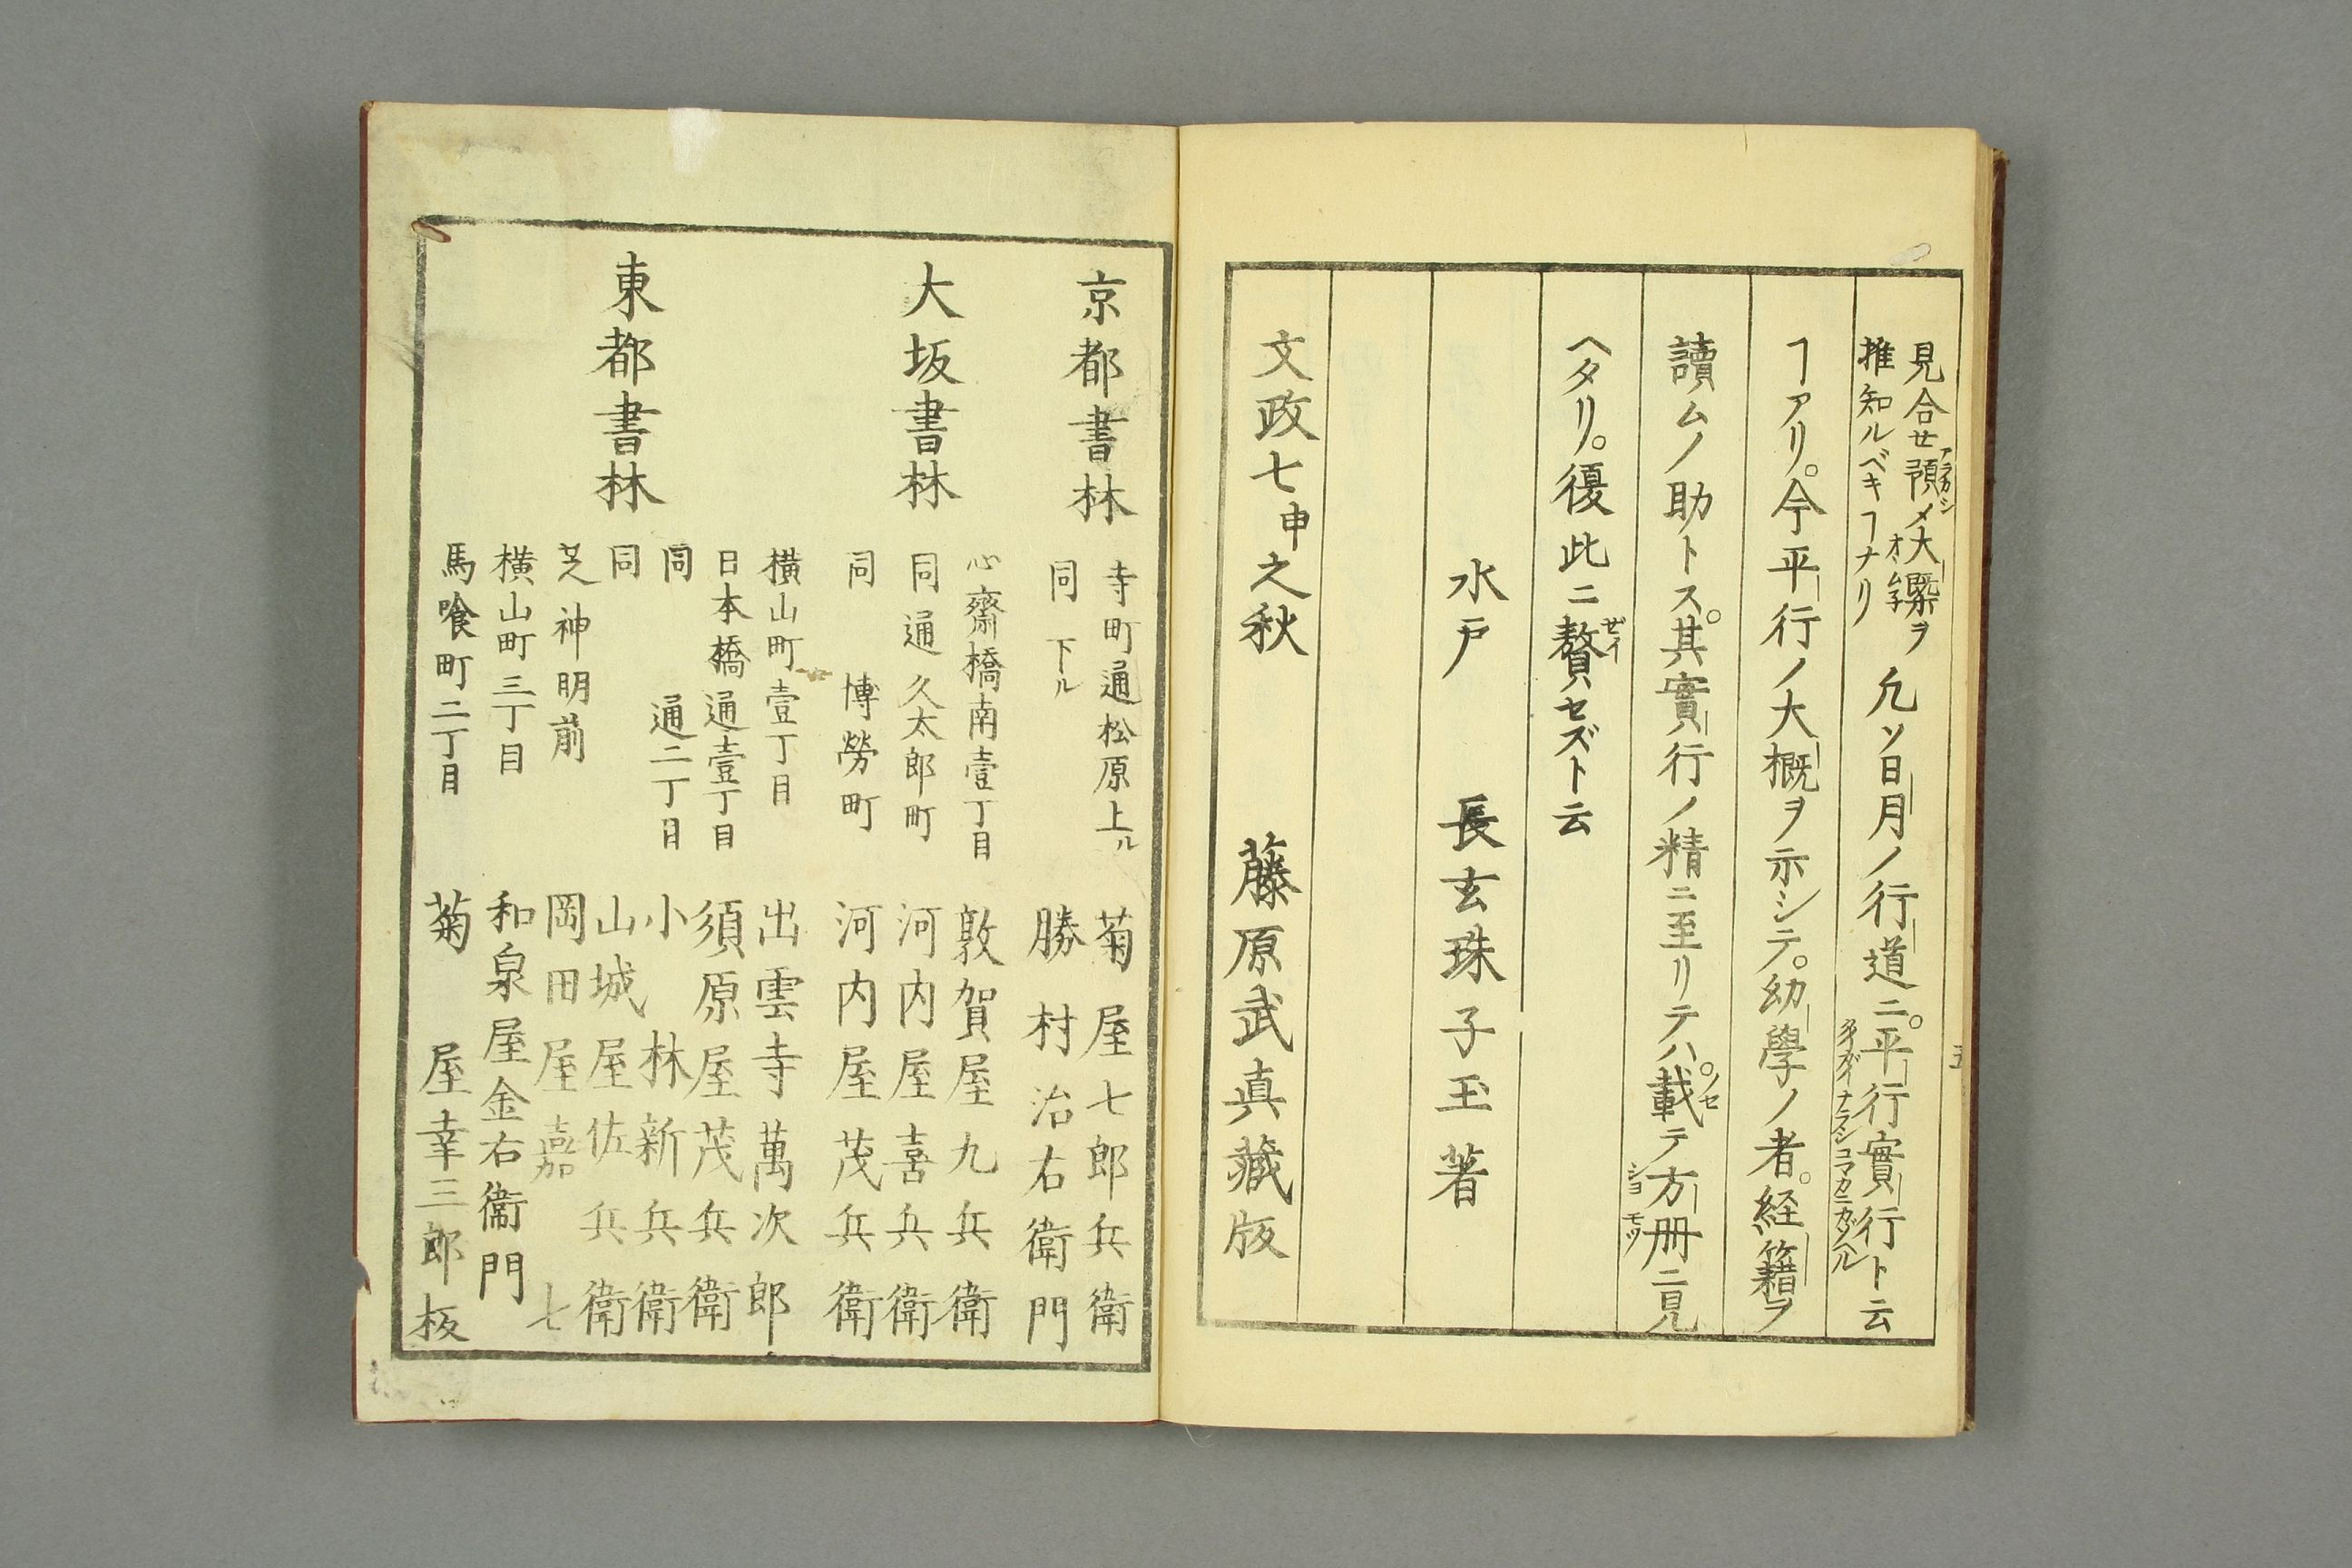 見合セ預メ大槩ヲ
推知ルベキヿナリ
凢ソ日月ノ行道ニ。平行實行ト云
ヿアリ。今平行ノ大概ヲ示シテ。幼學ノ者。経籍ヲ
讀ムノ助トス。其實行ノ精ニ至リテハ。載テ方册ニ見
ヘタリ。復此ニ贅セズト云
水戸 長玄珠子玉著
文政七申之秋 藤原武真藏版
五
京都書林
寺町通松原上ル 菊屋七郎兵衛
同 下ル 勝村治右衛門
大坂書林
心齋橋南壹丁目 敦賀屋九兵衛
同通久太郎町 河内屋喜兵衛
同 博勞町 河内屋茂兵衛
東都書林
横山町壹丁目 出雲寺萬次郎
日本橋通壹丁目 須原屋茂兵衛
同 通二丁目 小林新兵衛
同 山城屋佐兵衛
芝神明前 岡田屋嘉七
横山町三丁目 和泉屋金右衛門
馬喰町二丁目 菊屋幸三郎板